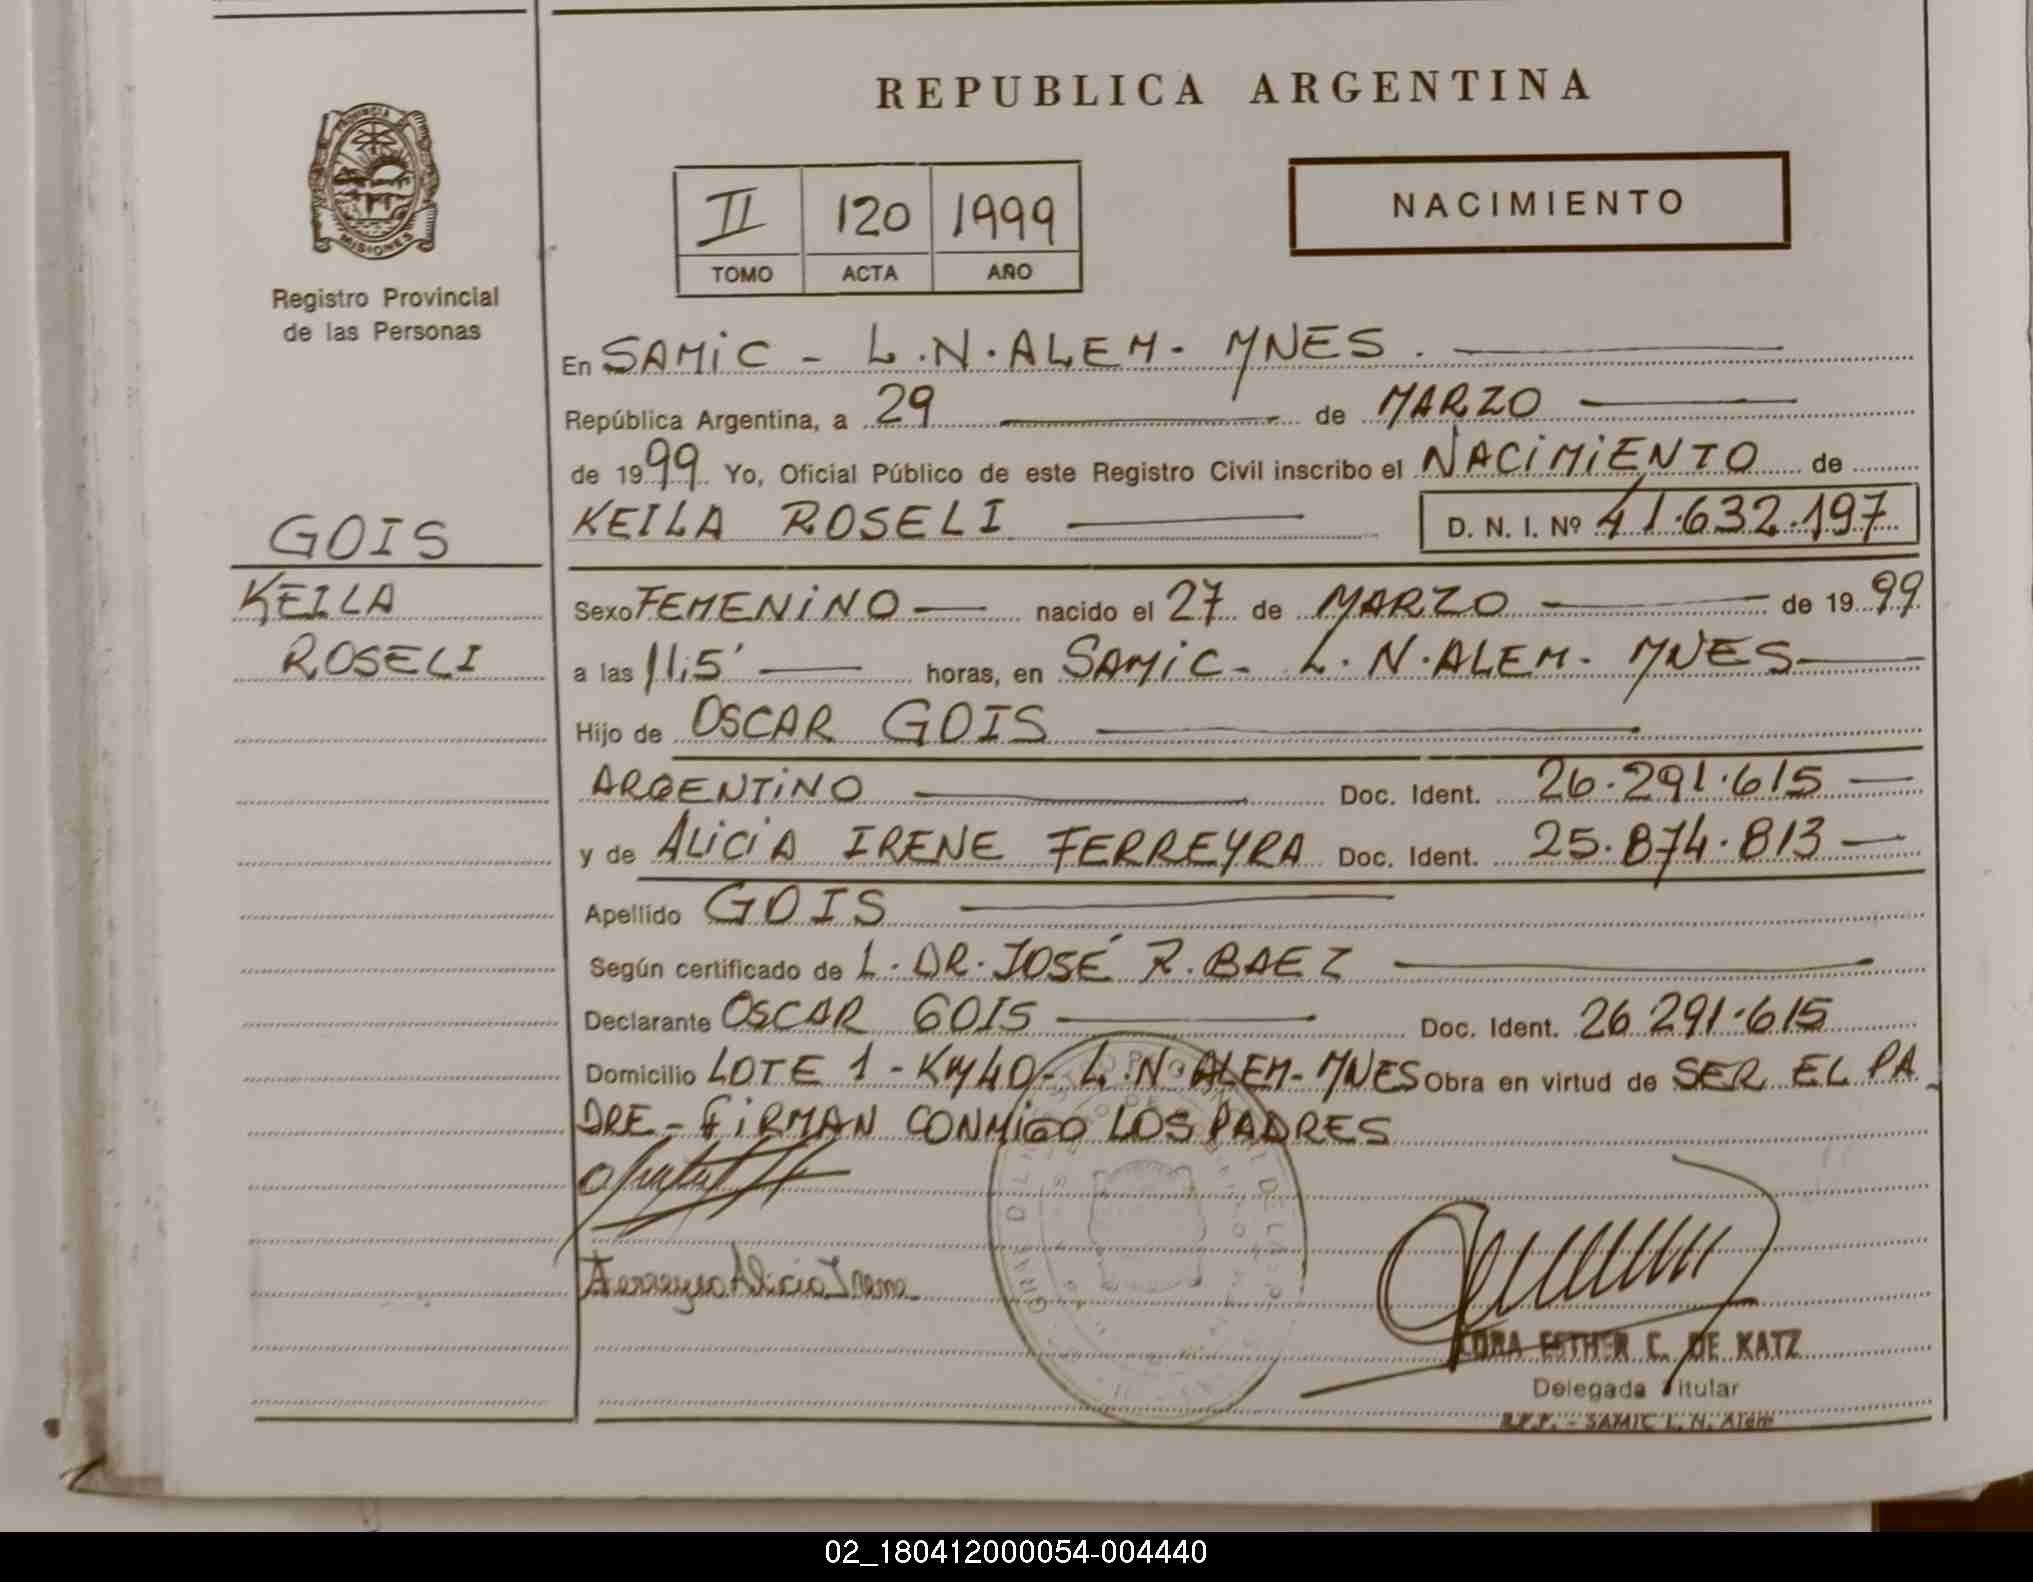 REPUBLICA ARGENTINA
PROVINCIA DE
MISIONES
Registro Provincial
de las Personas
II 120 1999
TOMO ACTA AÑO
NACIMIENTO
En SAMiC - L.N.ALEM - MNES.
República Argentina, a 29 de MARZO
de 1999 Yo, Oficial Público de este Registro Civil inscribo el NACiMiENTO de
KEILA ROSELI D. N. I. Nº 41.632.197
GOIS
KEILA
ROSELI
Sexo FEMENiNO nacido el 27 de MARZO de 1999
a las 11,5' horas, en SAMiC - L.N.ALEM - MNES
Hijo de OSCAR GOIS
ARGENTiNO Doc. Ident. 26.291.615
y de ALiCiA IRENE FERREYRA Doc. Ident. 25.874.813
Apellido GOIS
Según certificado de L. DR. JOSÉ R. BAEZ
Declarante OSCAR GOIS Doc. Ident. 26 291.615
Domicilio LOTE 1 - KM40 - L.N.ALEM - MNES Obra en virtud de SER EL PA
DRE - FiRMAN CONMiGO LOS PADRES
Ferreyra Alicia Irene
ESTHER C. DE KATZ
Delegada Titular
R.P.P. - SAMIC L. N. Alem
02_180412000054-004440